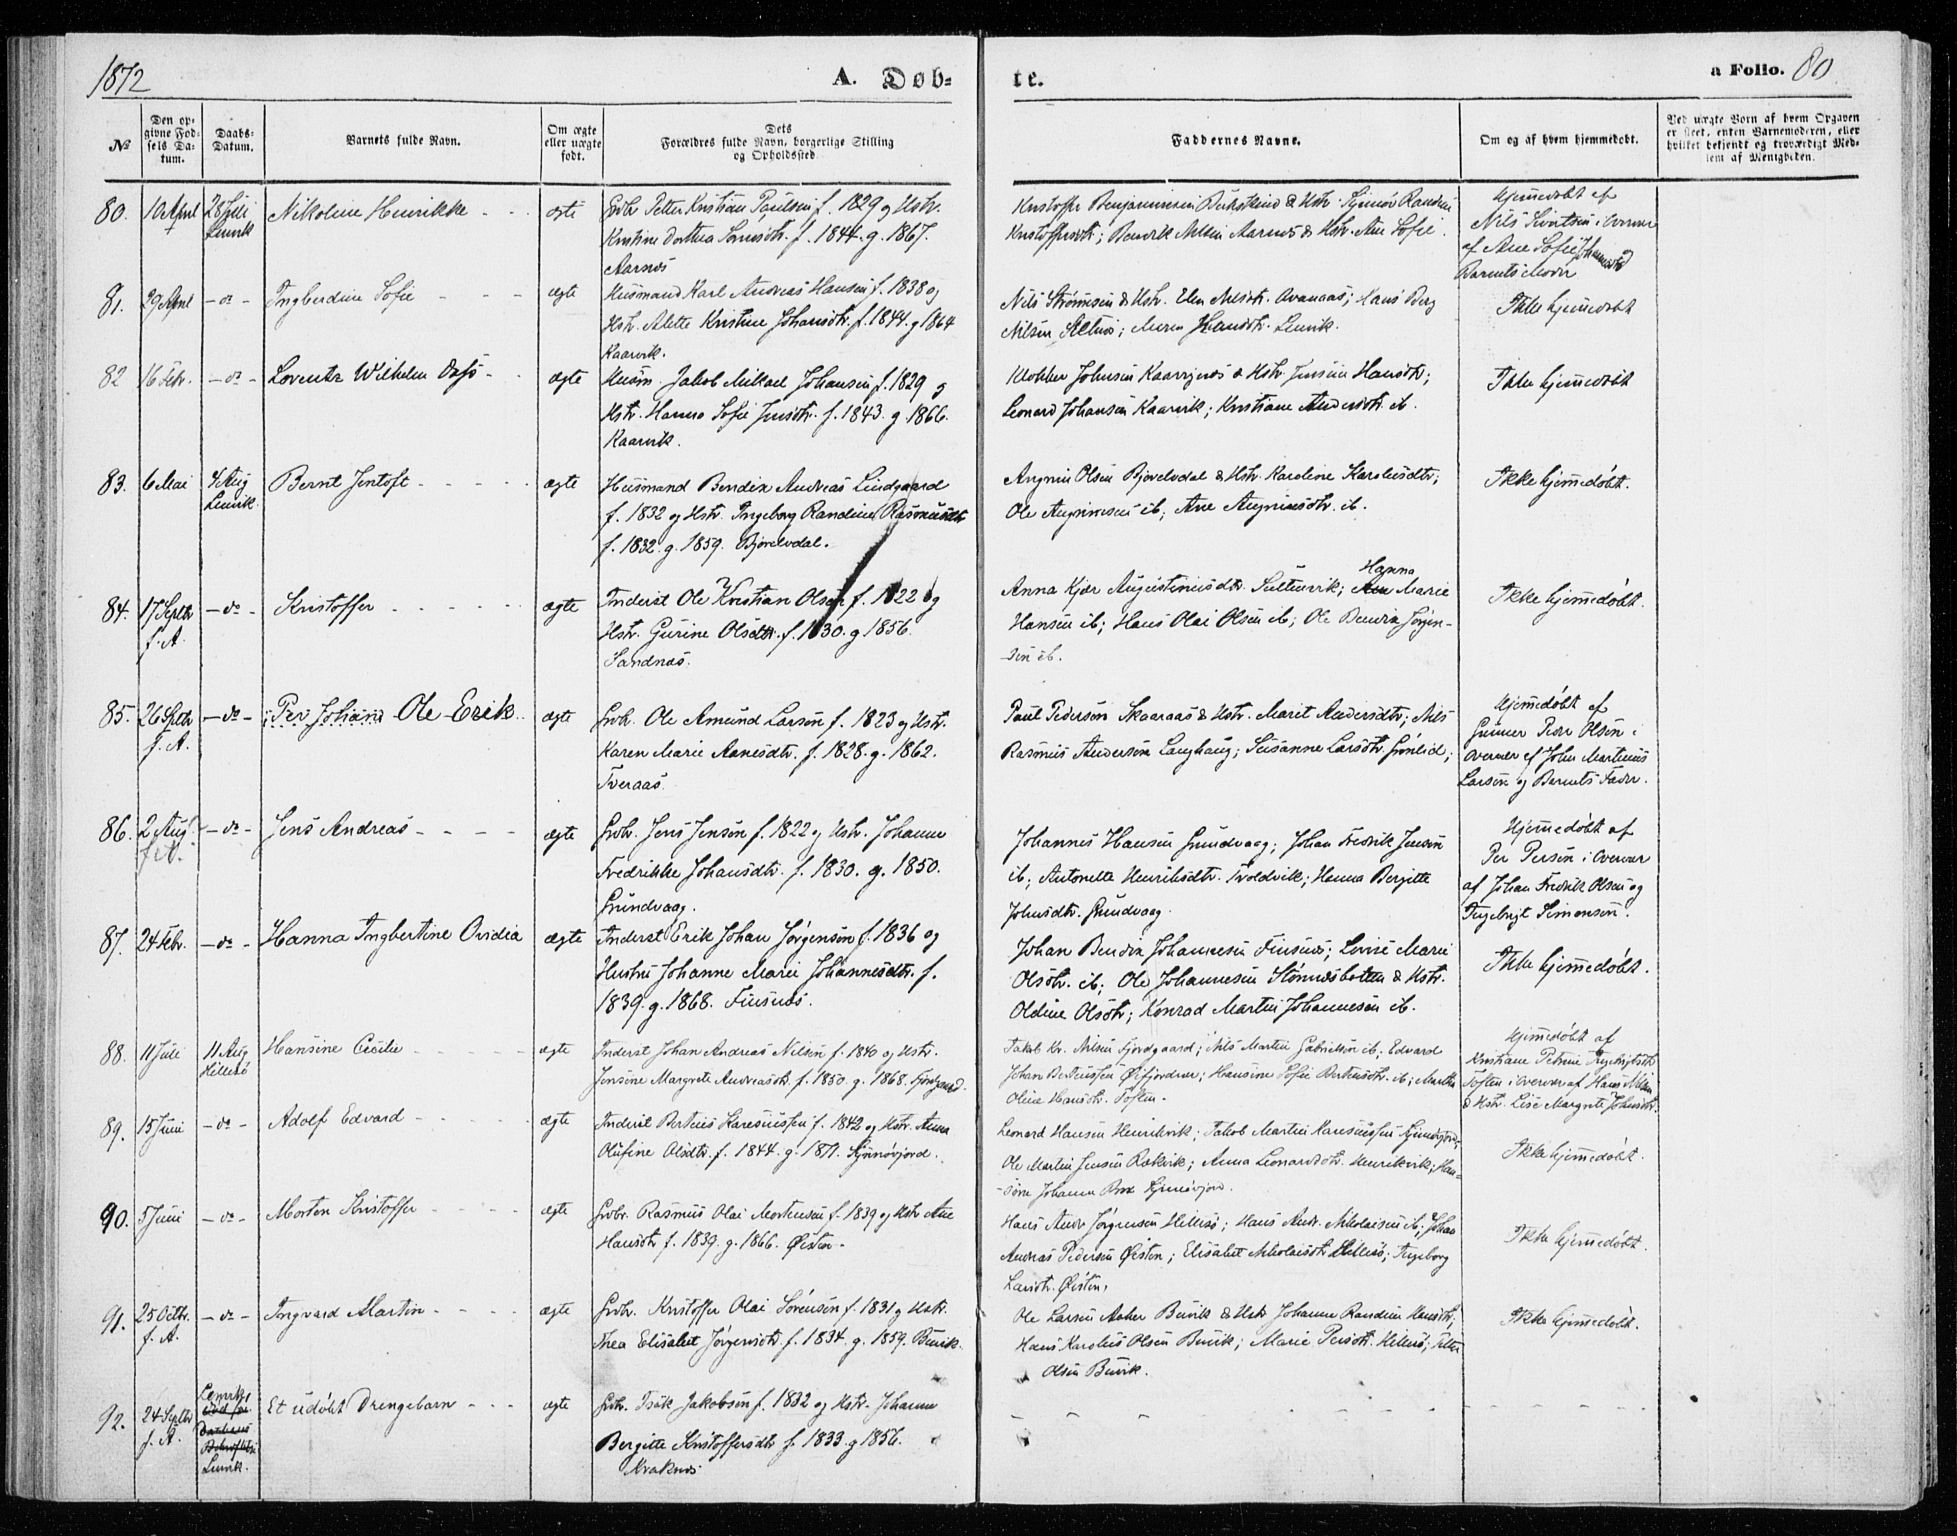 1872
A. Døb-
te.
a Folio. 80
No
Den op-
givne Fød-
sels Da-
tum.
Daabs-
Datum.
Barnets fulde Navn.
Om ægte
eller uægte
født.
Dets
Forældres fulde Navn, borgerlige Stilling
og Opholdssted
Faddernes Navne.
Om og af hvem hjemmedøbt.
Ved uægte Børn af hvem Opgaven
er skeet, enten Barnemoderen, eller
hvilket bekjendt og troværdigt Med-
lem af Menigheden.
80. 10 April 28 Juli Nikoline Henrikke - - ægte Gbr. Petter Kristian Paulsen f. 1829 og Hstr.
Lenvik Kristine Dorthea f. 1844. g. 1867.
Aarnes
Kristoffer Benjaminsen & Hstr.
Kristoffersdtr; Bendik Nilsen Aarnes & Hstr. Ane Sofie.
Hjemmedøbt af
Nils Sivertsen i Overvær
af Ane Sofie
Barnets Moder
81. 29 April - do - Ingberdine Sofie - - - ægte Husmand Karl Andreas Hansen f. 1838 og
Hstr. Alette Kristine Johansdtr. f. 1844. g 1864
Kaarvik.
Nils Strømsen & Hstr. Elen Nilsdtr. Avanaas; Hans Berg
Nilsen; Maren Hansdtr. Lenvik.
Ikke hjemmedøbt
82 16 Febr. - do - Lorentz Wilhelm Dass - - ægte Husm. Jakob Mikael Johansen f. 1829 g
Hstr. Hanna Sofie Jensdtr. f. 1843. g. 1866.
Kaarvik.
Klokker Johnsen & Hstr. Hansdtr;
Leonard Johansen Kaarvik; Kristiane Andersdtr. ib.
Ikke hjemmedøbt
83. 6 Mai 4 Aug Bernt Jentoft - - - - ægte Husmand Bendix Andreas Lindgaard
Lenvik. f. 1832 og Hstr. Ingeborg Randine Rasmusdtr
f. 1832. g. 1859. Bjorelvdal.
Angrim Olsen Bjorelvdal & Hstr. Karoline Karolusdtr;
Ole Angrimsen ib; Ane Angrimsdtr. ib.
Ikke hjemmedøbt.
84. 17 Septbr - do - Kristoffer - - - - - ægte Inderst Ole Kristian Olsen f. 1822 og
f. A. Hstr. Gurine Olsdtr. f. 1830. g 1856.
Sandnes.
Anna Kjær Augustinusdtr. Sultenvik; Hanna Marie
Hansen ib; Hans Olai Olsen ib; Ole Bendix Jørgen-
sen ib.
Ikke hjemmedøbt.
85. 26 Septbr - do - Per Johan Ole Erik - ægte Gbr. Ole Amund Larsen f. 1823 og Hstr.
f. A. Karen Marie Aanesdtr. f. 1828. g. 1862.
Tveraas.
Paul Pedersen Skaaraas & Hstr. Marit Andersdtr; Nils
Rasmus Andersen Langhaug; Susanne Larsdtr. Grønlid;
Hjemmedøbt af
Gunner Peder Olsen i
Overvær af John Martinus
Larsen og Barnets Fader.
86. 2 Aug. - do - Jens Andreas - - - - ægte Gbr. Jens Jensen f. 1822 og Hstr. Johanne
f. A. Fredrikke Johansdtr. f. 1830. g. 1850.
Grundvaag.
Johannes Hansen Grundvaag; Johan Fredrik Jensen
ib; Antonette Henriksdtr. Troldvik; Hanna Bergitte
Johnsdtr. Grundvaag.
Hjemmedøbt af
Per Persen i Overvær
af Johan Fredrik Olsen og
Ingebrigt Simonsen.
87. 24 Febr. - do - Hanna Ingbertine Ovidia ægte Inderst Erik Johan Jørgensen f. 1836 og
Hustru Johanne Marie Johannesdtr. f.
1839. g. 1868. Finsnes.
Johan Bendix Johannesen Finsnes; Lovise Marie
Olsdtr. ib; Ole Johannesen Stønnesbotten & Hstr.
Oldine Olsdtr; Konrad Martin Johannesen ib.
Ikke hjemmedøbt.
88. 11 Juli 11 Aug Hansine Cecilie - - - - ægte Inderst Johan Andreas Nilsen f. 1840 og Hstr.
Hillesø Jensine Margrete Andreasdtr. f. 1850 g. 1868. Fjordgaard.
Jakob Kr. Nilsen Fjordgaard; Nils Martin Gabrielsen ib; Edvard
Johan Berteussen Øifjordnær; Hansine Sofie Berteusdtr. ib; Martha
Oline Hansdtr. Toften.
Hjemmedøbt af
Kristiane Petrine Ingebrigtsdtr
Toften i Overvær af Hans Nilsen
& Hstr. Lise Margrete Johnsdtr.
89. 15 Juni - do - Adolf Edvard - - - - ægte Inderst Berteus Karenussen f. 1842 og Hstr. Anna
Olufine Olsdtr. f. 1844. g. 1871. Synnøvjord.
Leonard Hansen Henrikvik; Jakob Martin Karenussen;
Ole Martin Jensen Rekvik; Anna Leonardsdtr. Henrikvik; Han-
sine Johanna.
Ikke hjemmedøbt.
90. 5 Juni - do - Morten Kristoffer - - - ægte Gbr. Rasmus Olai Mortensen f. 1839 og Hstr. Ane
Hansdtr f. 1839. g. 1866. Øisten.
Hans Andr Jørgensen Hillesø; Hans Andr. Nikolaisen ib; Johan
Andreas Pedersen Øisten; Elisabet Nikolaisdtr Hillesø; Ingeborg
Larsdtr. Øisten.
Ikke hjemmedøbt.
91. 25 Octbr. - do - Ingvard Martin - - - ægte Gbr. Kristoffer Olai Sørensen f. 1831 og Hstr.
f. A. Elisabet Jørgensdtr. f. 1834. g. 1859. Buvik.
Ole Larsen Aaker Buvik & Hstr Johanne Randine Hansdtr;
Hans Karolius Olsen Buvik; Marie Persdtr. Hillesø; Petter
Olsen Buvik.
Ikke hjemmedøbt.
92. 24 Septbr Lenvik Et udøbt Drengebarn - - - ægte Gbr. Isak Jakobsen f. 1832 og Hstr. Johanne
f. A. Lenvik. Bergitte Kristoffersdtr f. 1833. g 1856.
Kraknes